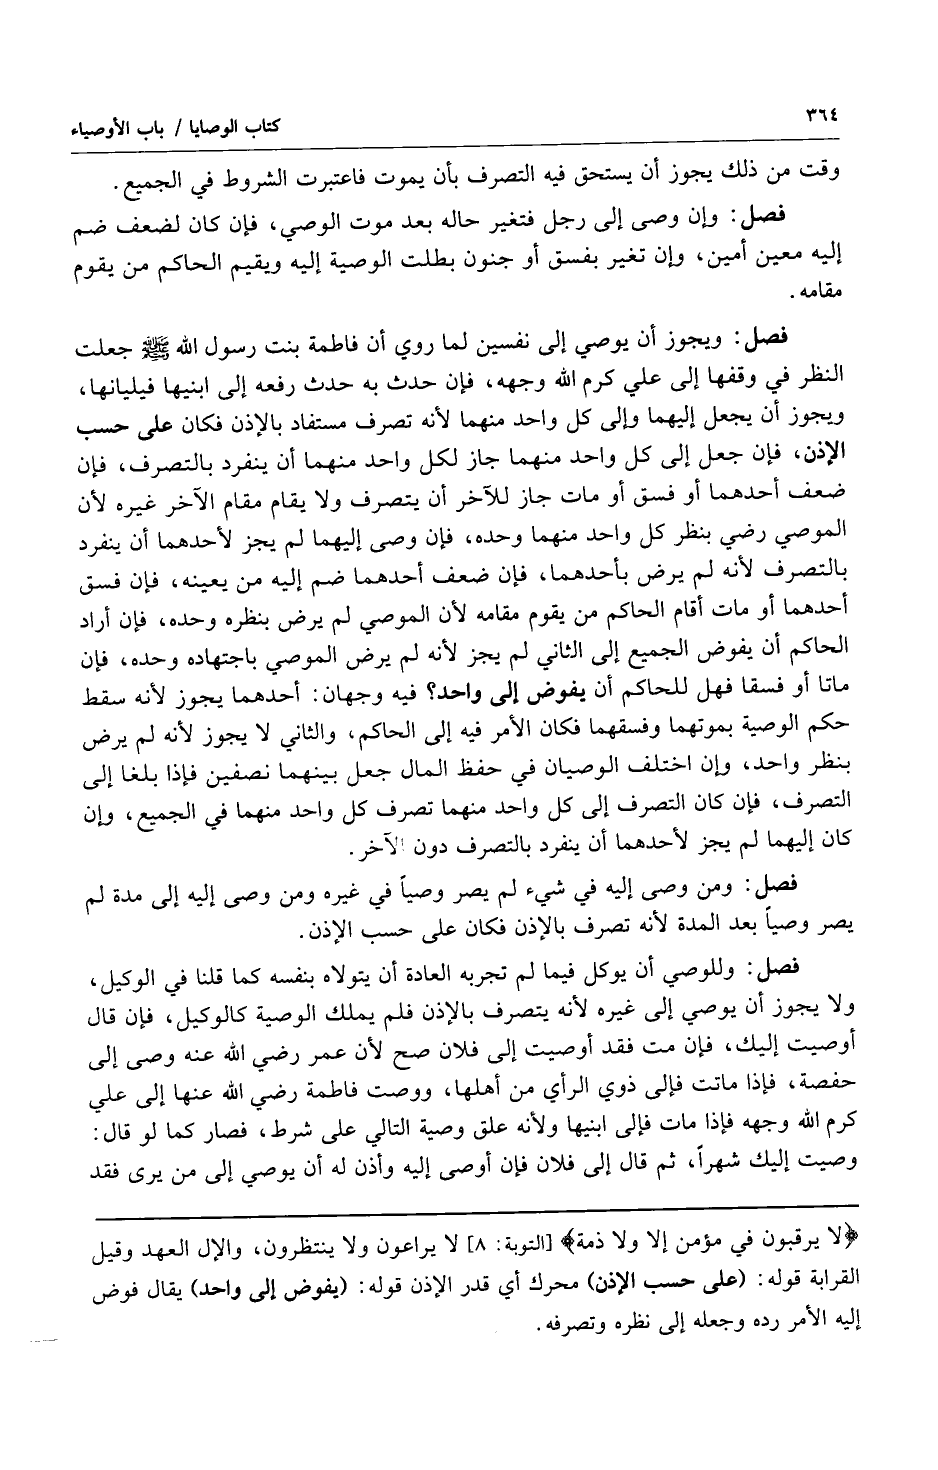 ٣٦٤
كتاب الوصايا / باب الأوصياء
وقت من ذلك يجوز أن يستحق فيه التصرف بأن يموت فاعتبرت الشروط في الجميع.
فصل: وإن وصى إلى رجل فتغير حاله بعد موت الوصي، فإن كان لضعف ضم
إليه معين أمين، وإن تغير بفسق أو جنون بطلت الوصية إليه ويقيم الحاكم من يقوم
مقامه.
فصل: ويجوز أن يوصي إلى نفسين لما روي أن فاطمة بنت رسول الله ﷺ جعلت
النظر في وقفها إلى علي كرم الله وجهه، فإن حدث به حدث رفعه إلى ابنيها فيليانها،
ويجوز أن يجعل إليهما وإلى كل واحد منهما لأنه تصرف مستفاد بالإذن فكان على حسب
الإذن، فإن جعل إلى كل واحد منهما جاز لكل واحد منهما أن ينفرد بالتصرف، فإن
ضعف أحدهما أو فسق أو مات جاز للآخر أن يتصرف ولا يقام مقام الآخر غيره لأن
الموصي رضي بنظر كل واحد منهما وحده، فإن وصى إليهما لم يجز لأحدهما أن ينفرد
بالتصرف لأنه لم يرض بأحدهما، فإن ضعف أحدهما ضم إليه من يعينه، فإن فسق
أحدهما أو مات أقام الحاكم من يقوم مقامه لأن الموصي لم يرض بنظره وحده، فإن أراد
الحاكم أن يفوض الجميع إلى الثاني لم يجز لأنه لم يرض الموصي باجتهاده وحده، فإن
ماتا أو فسقا فهل للحاكم أن يفوض إلى واحد؟ فيه وجهان: أحدهما يجوز لأنه سقط
حكم الوصية بموتهما وفسقهما فكان الأمر فيه إلى الحاكم، والثاني لا يجوز لأنه لم يرض
بنظر واحد، وإن اختلف الوصيان في حفظ المال جعل بينهما نصفين فإذا بلغا إلى
التصرف، فإن كان التصرف إلى كل واحد منهما تصرف كل واحد منهما في الجميع، وإن
كان إليهما لم يجز لأحدهما أن ينفرد بالتصرف دون الآخر.
فصل: ومن وصى إليه في شيء لم يصر وصياً في غيره ومن وصى إليه إلى مدة لم
يصر وصياً بعد المدة لأنه تصرف بالإذن فكان على حسب الإذن.
فصل: وللوصي أن يوكل فيما لم تجربه العادة أن يتولاه بنفسه كما قلنا في الوكيل،
ولا يجوز أن يوصي إلى غيره لأنه يتصرف بالإذن فلم يملك الوصية كالوكيل، فإن قال
أوصيت إليك، فإن مت فقد أوصيت إلى فلان صح لأن عمر رضي الله عنه وصى إلى
حفصة، فإذا ماتت فإلى ذوي الرأي من أهلها، ووصت فاطمة رضي الله عنها إلى علي
كرم الله وجهه فإذا مات فإلى ابنيها ولأنه علق وصية التالي على شرط، فصار كما لو قال:
وصيت إليك شهراً، ثم قال إلى فلان فإن أوصى إليه وأذن له أن يوصي إلى من يرى فقد
﴿لا يرقبون في مؤمن إلا ولا ذمة﴾ [التوبة: ٨] لا يراعون ولا ينتظرون، والإل العهد وقيل
القرابة قوله: (على حسب الإذن) محرك أي قدر الإذن قوله: (يفوض إلى واحد) يقال فوض
إليه الأمر رده وجعله إلى نظره وتصرفه.